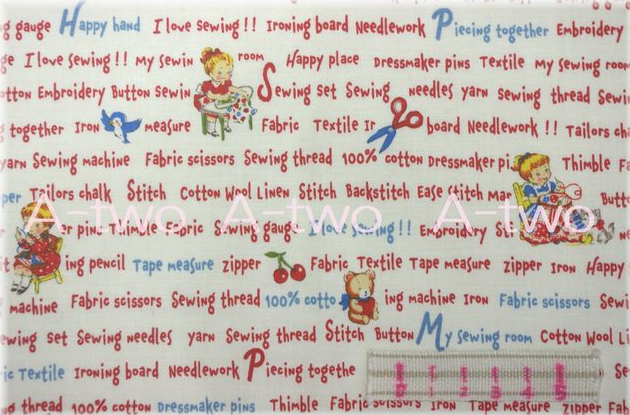 g gauge Happy hand I love Sewing!! Ironing board Needlework Piecing together Embroidery
ge I love Sewing!! My Sewin room Happy place Dressmaker pins Textile my Sewing room
otton Embroidery Button Sewin Sewing set Sewing needles yarn sewing thread Sewi
g together Iron measure Fabric Textile Ir board Needlework !! Tailors cha
yarn Sewing machine Fabric scissors Sewing thread 100% cotton Dressmaker pi Thimble Fa
per Tailors chalk Stitch Cotton Wool Linen Stitch Backstitch Ease Stitch ma Butto
A-two A-two A-two
er pins Thimble Fabric Sewing gauge I love Sewing!! Embroidery Sti ne
it ing pencil Tape measure zipper Fabric Textile Tape measure zipper Iron Happy
machine Fabric scissors Sewing thread 100% cotto ing machine Iron Fabric scissors Sewi
ewing set Sewing needles yarn Sewing thread Stitch Button My Sewing room Cotton Wool Li
ic Textile Ironing board Needlework Piecing togethe Se
g thread 100% cotton Dressmaker pins Thimble Fabric scissors Iron Tape measure zipper